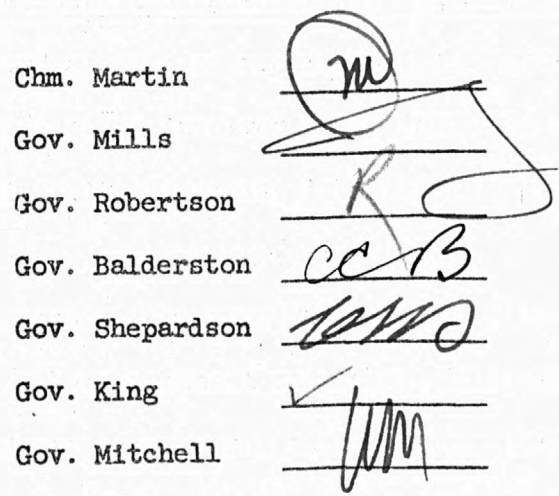 Chm. Martin M
Gov. Mills
Gov. Robertson R
Gov. Balderston CCB
Gov. Shepardson
Gov. King ✓
Gov. Mitchell WM